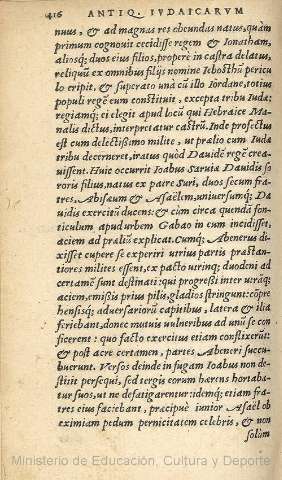 416 ANTIQ. IVDAICARVM
nuus, & ad magnas res obeundas natus, quàm
primum cognouit cecidisse regem & Ionatham,
aliosq́; duos eius filios, properè in castra delatus,
reliquũ ex omnibus filijs nomine Iebosthũ pericu
lo eripit, & superato unà cũ illo Iordane, totius
populi regẽ eum constituit, excepta tribu Iuda:
regiamq́; ei elegit apud locũ qui Hebraicè Ma-
nalis dictus, interpretatur castrũ. Inde profectus
est cum delectissimo milite, ut prælio cum Iuda
tribu decerneret, iratus quòd Dauidẽ regẽ crea-
uissent. Huic occurrit Ioabus Saruia Dauidis so
roris filius, natus ex patre Suri, duos secum fra-
tres, Abisæum & Asaëlem, uniuersumq́; Da
uidis exercitũ ducens: & cùm circa quendã fon-
ticulum apud urbem Gabao in eum incidisset,
aciem ad præliũ explicat. Cumq́; Abenerus di-
xisset cupere se experiri utrius partis præstan-
tiores milites essent, ex pacto utrinq; duodeni ad
certamẽ sunt destinati: qui progressi inter utrãq;
aciem, emißis prius pilis, gladios stringunt: cõpre
hensisq́; aduersariorũ capitibus, latera & ilia
feriebant, donec mutuis uulneribus ad unũ se con
ficerent: quo facto exercitus etiam conflixerũt:
& post acre certamen, partes Abeneri succu-
buerunt. Versos deinde in fugam Ioabus non de-
stitit persequi, sed tergis eorum hærens hortaba-
tur suos, ut ne defatigarentur: idemq́; etiam fra-
tres eius faciebant, præcipuè iunior Asaël ob
eximiam pedum pernicitatem celebris, & non
solùm
Ministerio de Educación, Cultura y Deporte